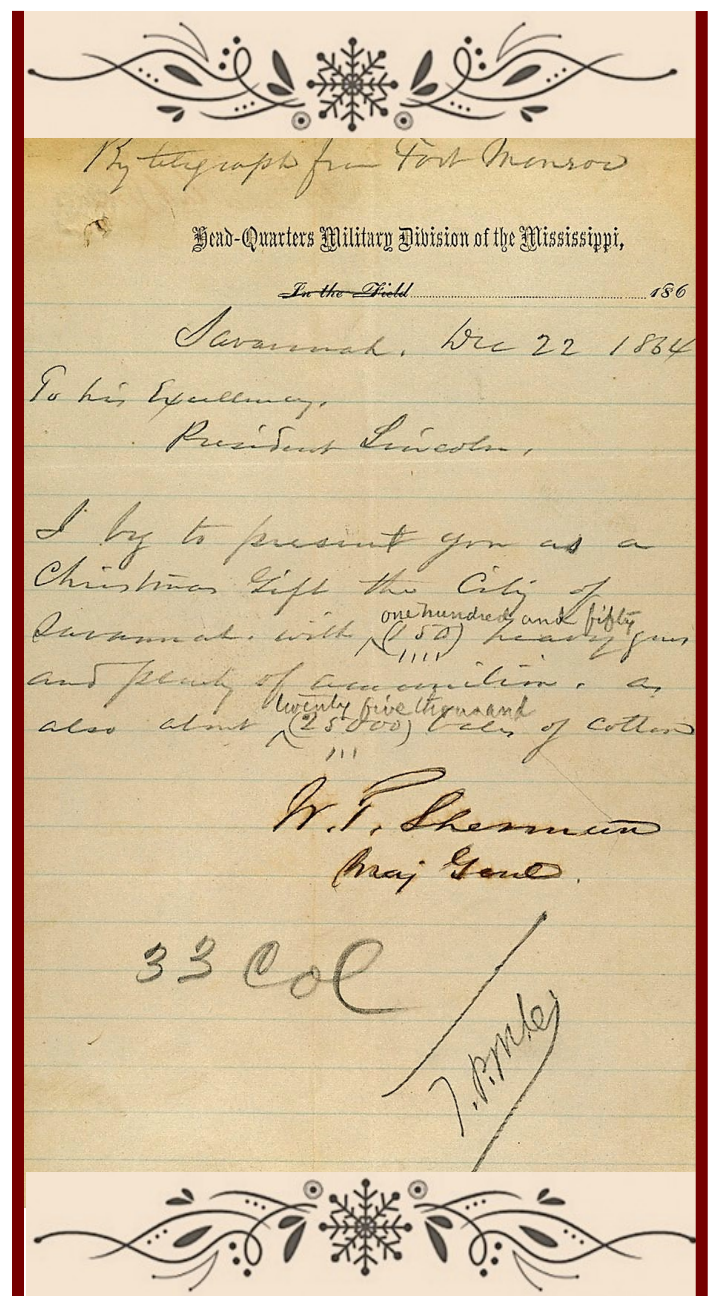 By telegraph from Fort Monroe
Head-Quarters Military Division of the Mississippi,
In the Field 186
Savannah. Dec 22 1864
To his Excellency.
President Lincoln.
I beg to present you as a
Christmas Gift the City of
one hundred and fifty
Savannah. with (150) heavy guns
and plenty of ammunition. as
twenty five thousand
also about (25000) bales of cotton
W. T. Sherman
Maj Genl.
33 Col